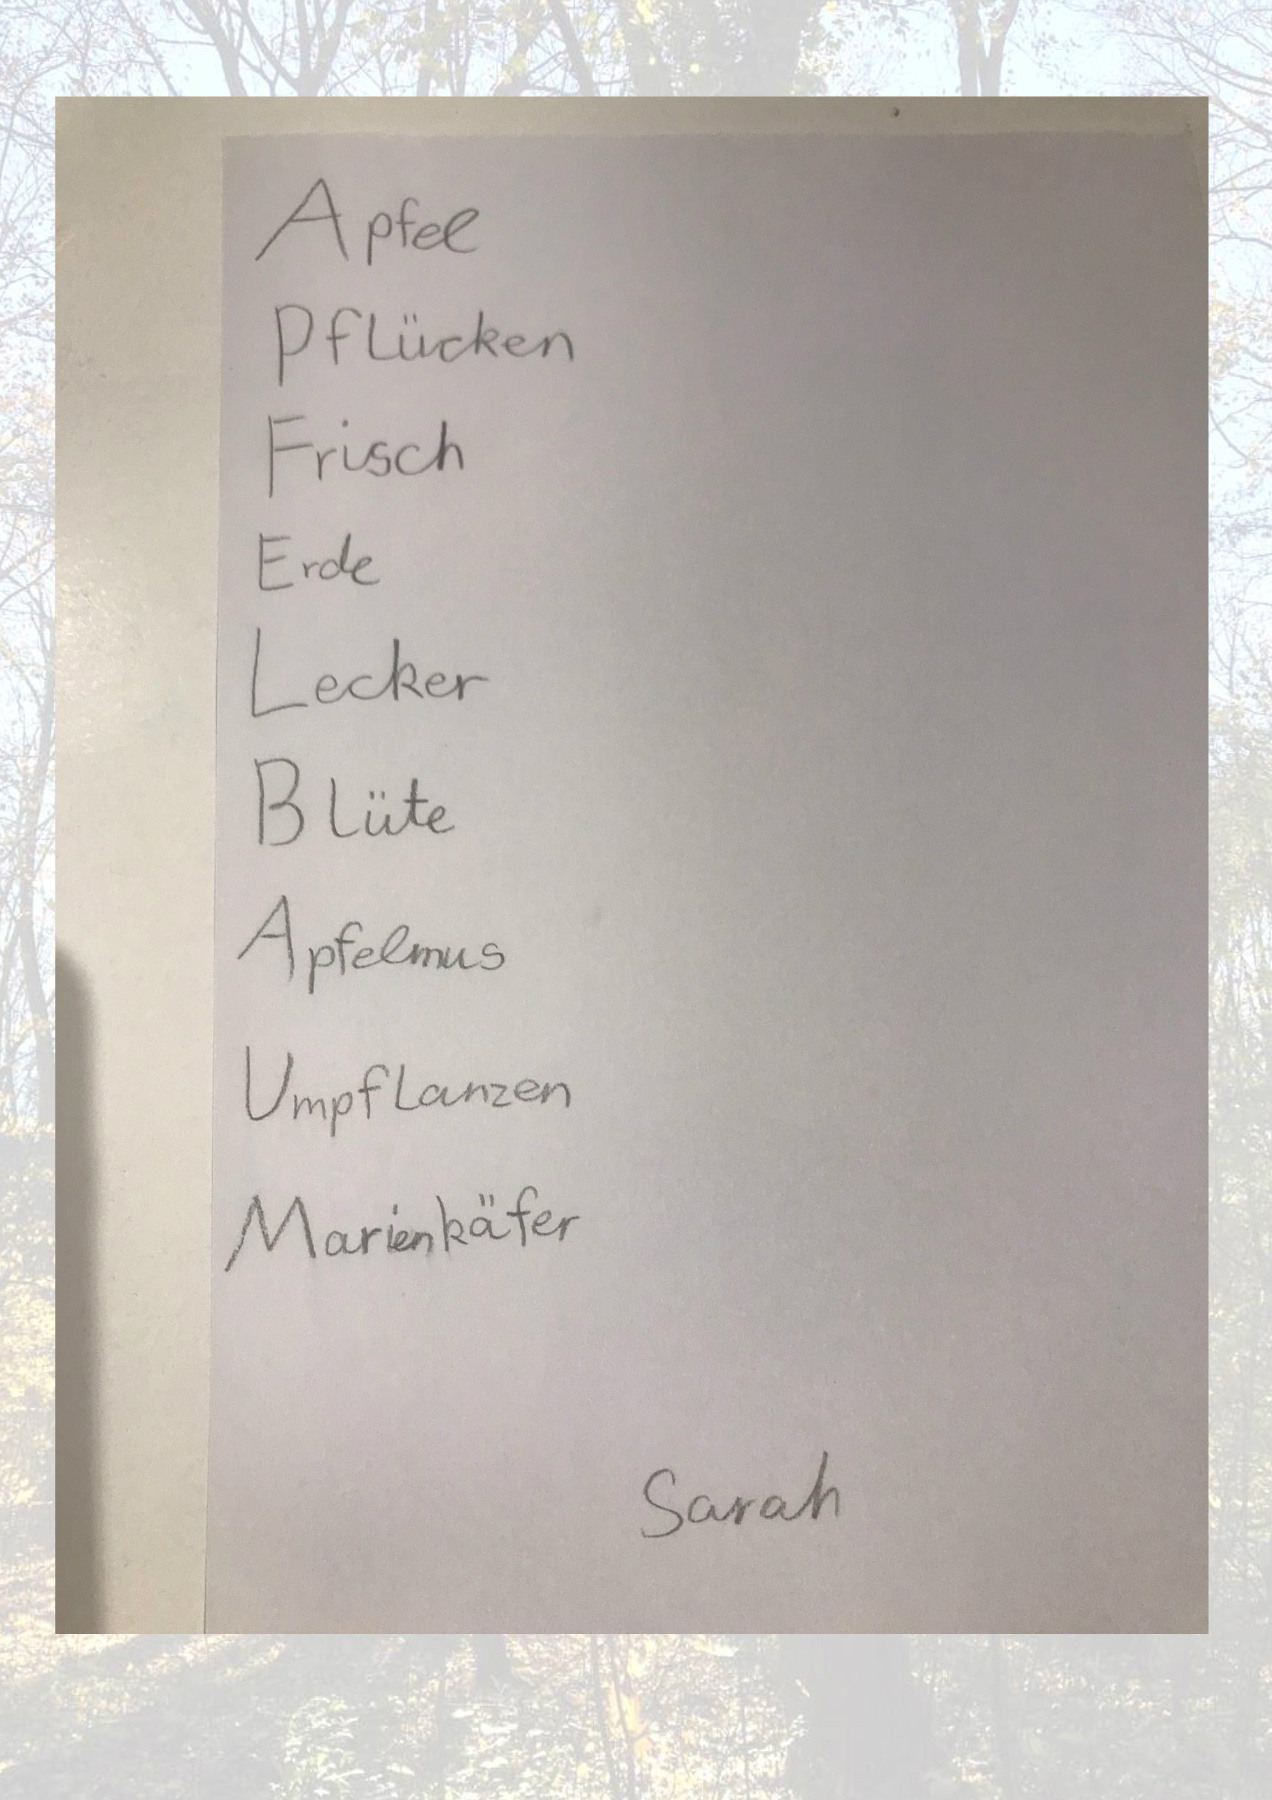 Apfel
Pflücken
Frisch
Erde
Lecker
Blüte
Apfelmus
Umpflanzen
Marienkäfer
Sarah